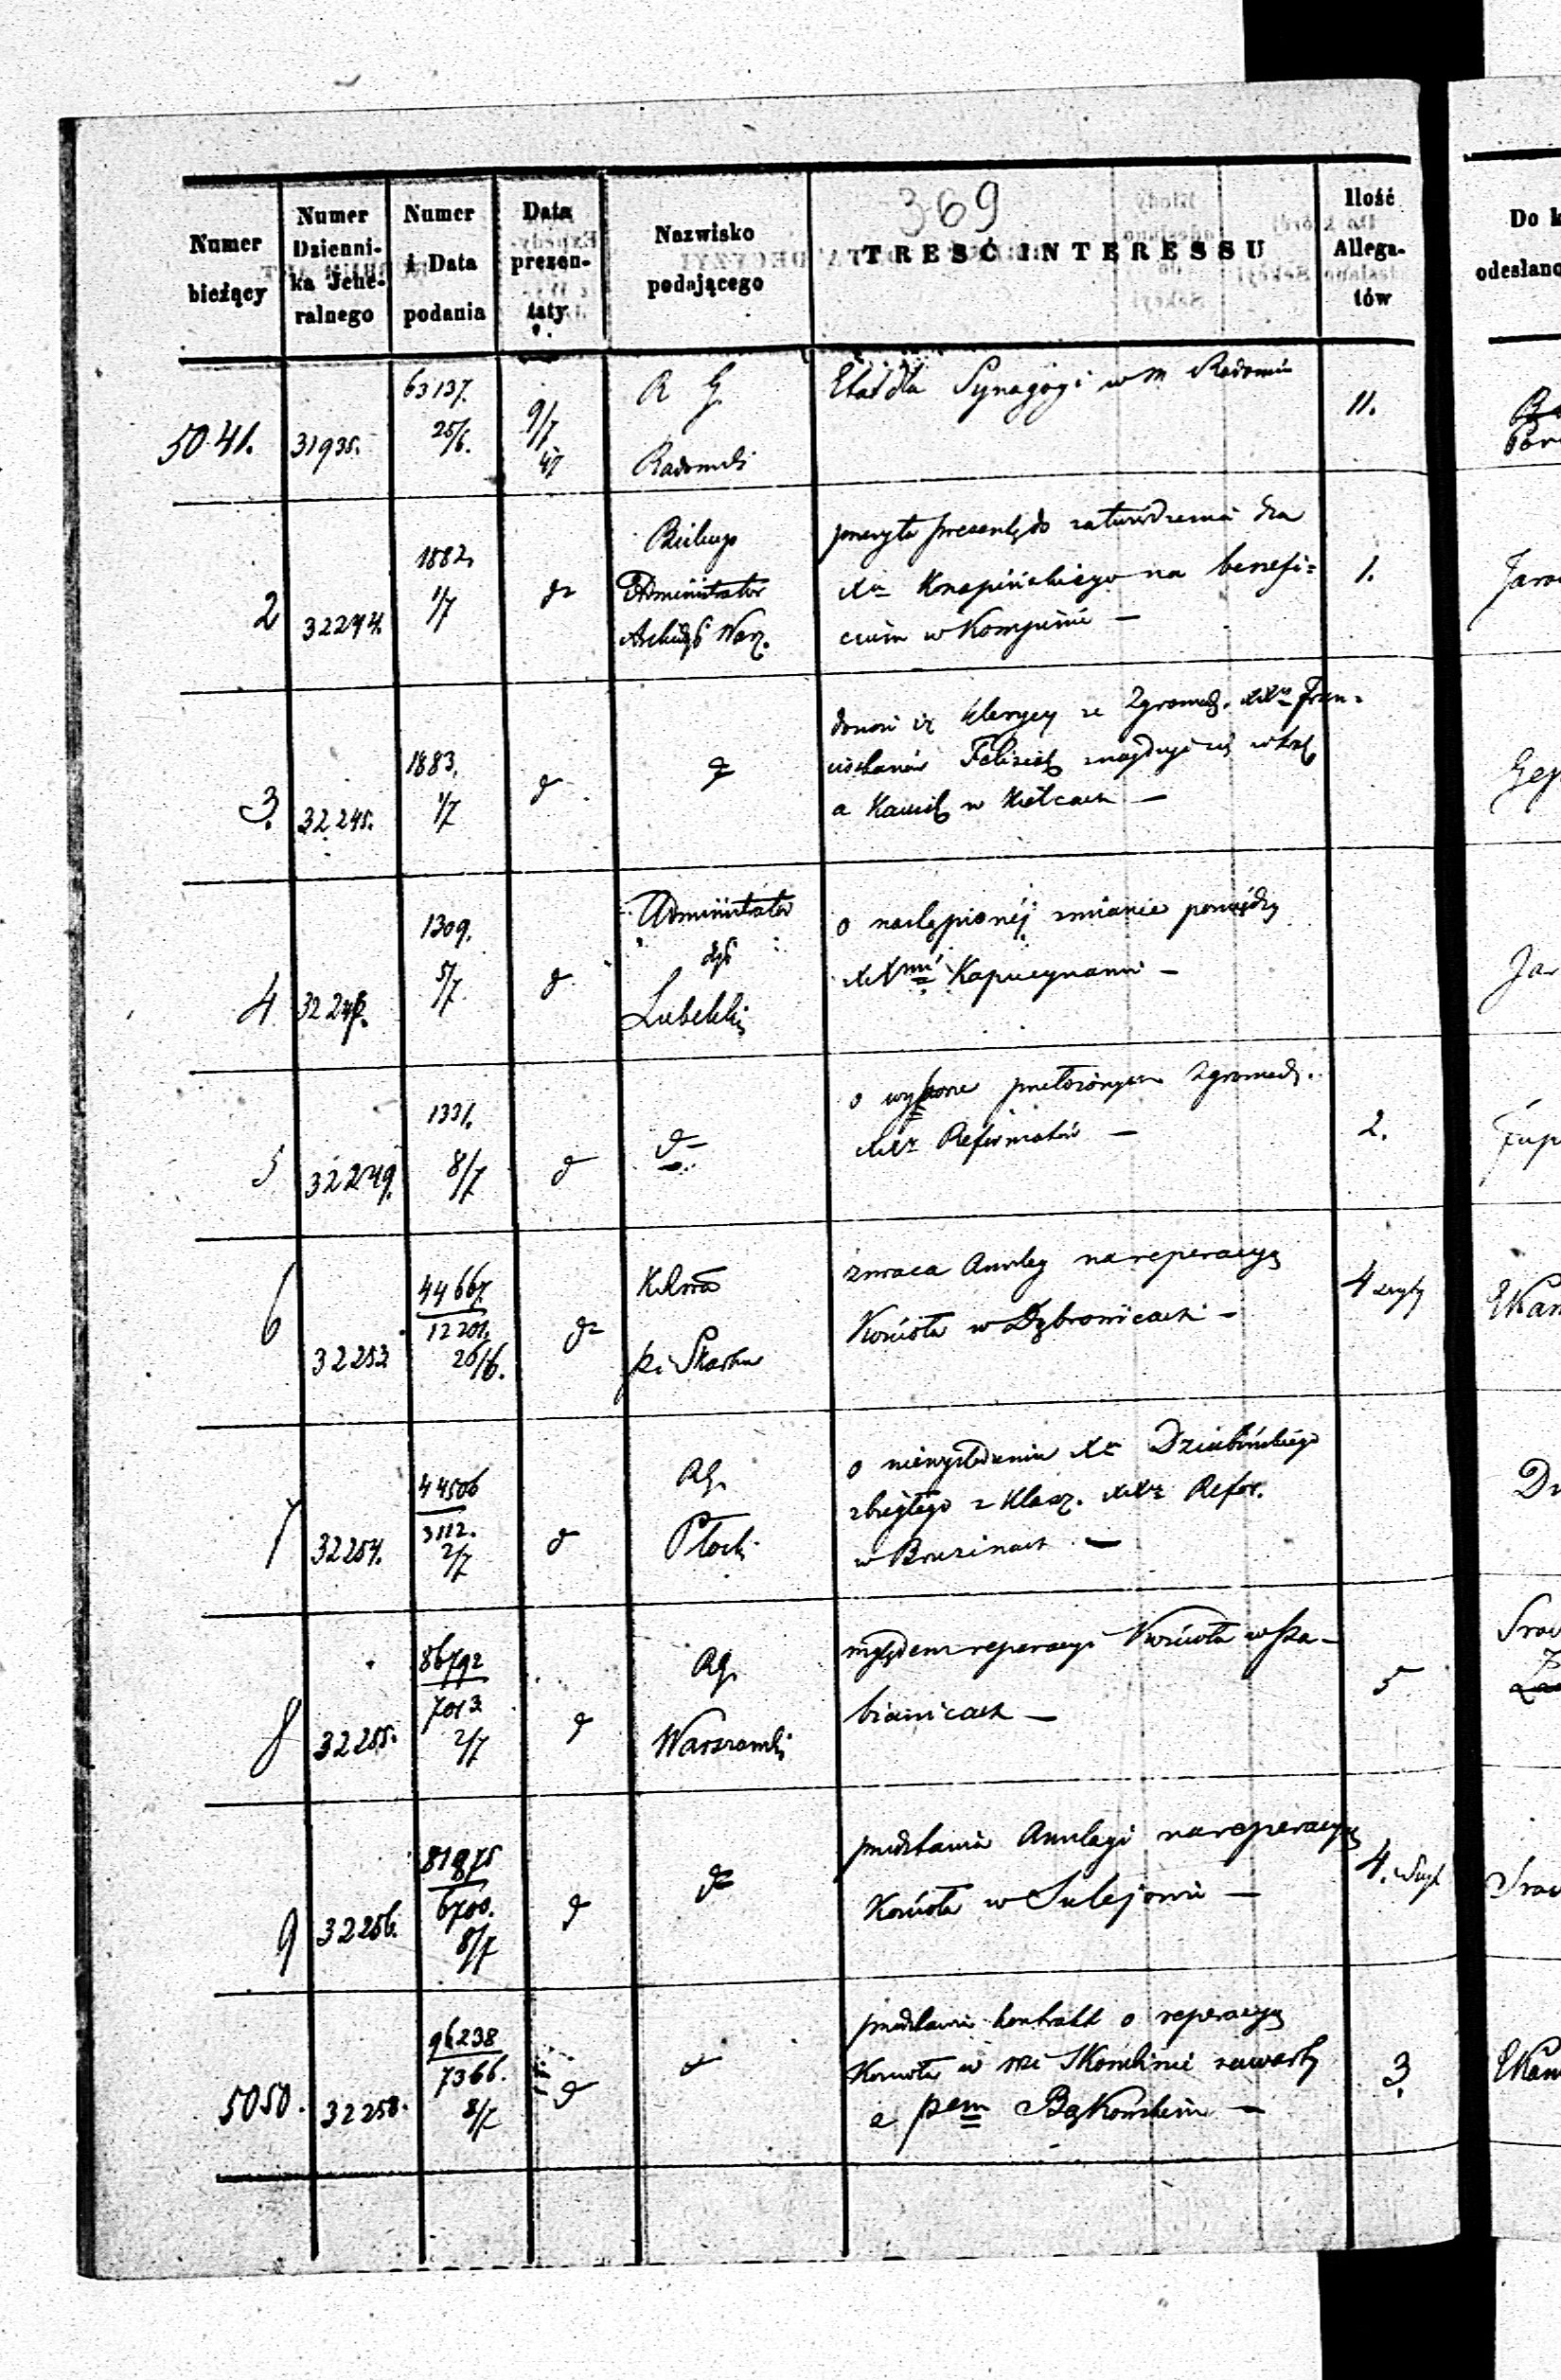 369
Numer bieżący
Numer Dzienni-ka Jene-ralnego
Numer i Data podania
Data prezen-taty
Nazwisko podającego
TREŚĆ INTERESSU
Ilość Allega-tów
Do k
odesłano
5041. 31935. 63137. 25/6. 9/7 47 R G. Radomski
Etat dla Synagogi w m Radomiu
11.
2 32244. 1882, 1/7 do Biskup Administrator Archidyi Warz.
przesyła prezentę do zatwierdzenia dla
Xa Konopińskiego na benefi=
cium w Kompinie —
1.
3. 32245. 1883, 1/7 d do
donosi iż klerycy ze Zgromadz. XXów Fran=
ciszkanów
a Kamil w Kielcach —
4 1309. 5/7. d Administrator dyi Lubelskiej
o nastąpionéj zmianie pomiędzy
XXmi Kapucynami —
5 32249. 1331. 8/7 d do
o wyborze przełożonych Zgromadz.
XXr Reformatów —
2.
6 32253 44667. 12201. 26/6. do KRwa pi Skarbu
zwraca Anszlag na reperacyą
Kościoła w Dąbrowicach —
4
7 32254. 44506 3112. 2/7 d RG. Płocki
o niewyśledzeniu Xa Dziubińskiego
zbiegłego z Klasz. XXr Refor.
w Brzezinach —
8 32255. 86792 7013 2/7 d RG. Warszawski
względem reperacyi Kościoła w Pa-
bianicach —
5
9 32256. 81975 6700. 8/7 d do
przedstawia Anszlagi na reperacyą
Kościoła w Sulejowie —
4.
5050. 32258. 96238 7366. 8/7 d d
przedstawia kontrakt o reperacyą
Kościoła w wsi Skomlinie zawarty
z pem Bąkowskim —
3.